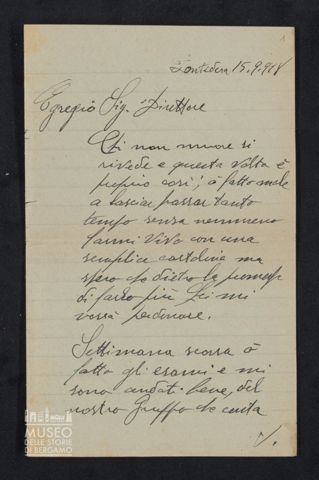 1
Pontedera 15.9.918
Egregio Sig. Direttore
Chi non muore si
rivede e questa volta è
proprio così; ò fatto male
a lasciar passar tanto
tempo senza nemmeno
farmi vivo con una
semplice cartolina ma
spero che dietro la promessa
di farlo più Lei mi
vorrà perdonare.
Settimana scorsa ò
fatto gli esami e mi
sono andati bene, del
nostro Gruppo che conta
MUSEO
DELLE STORIE
DI BERGAMO